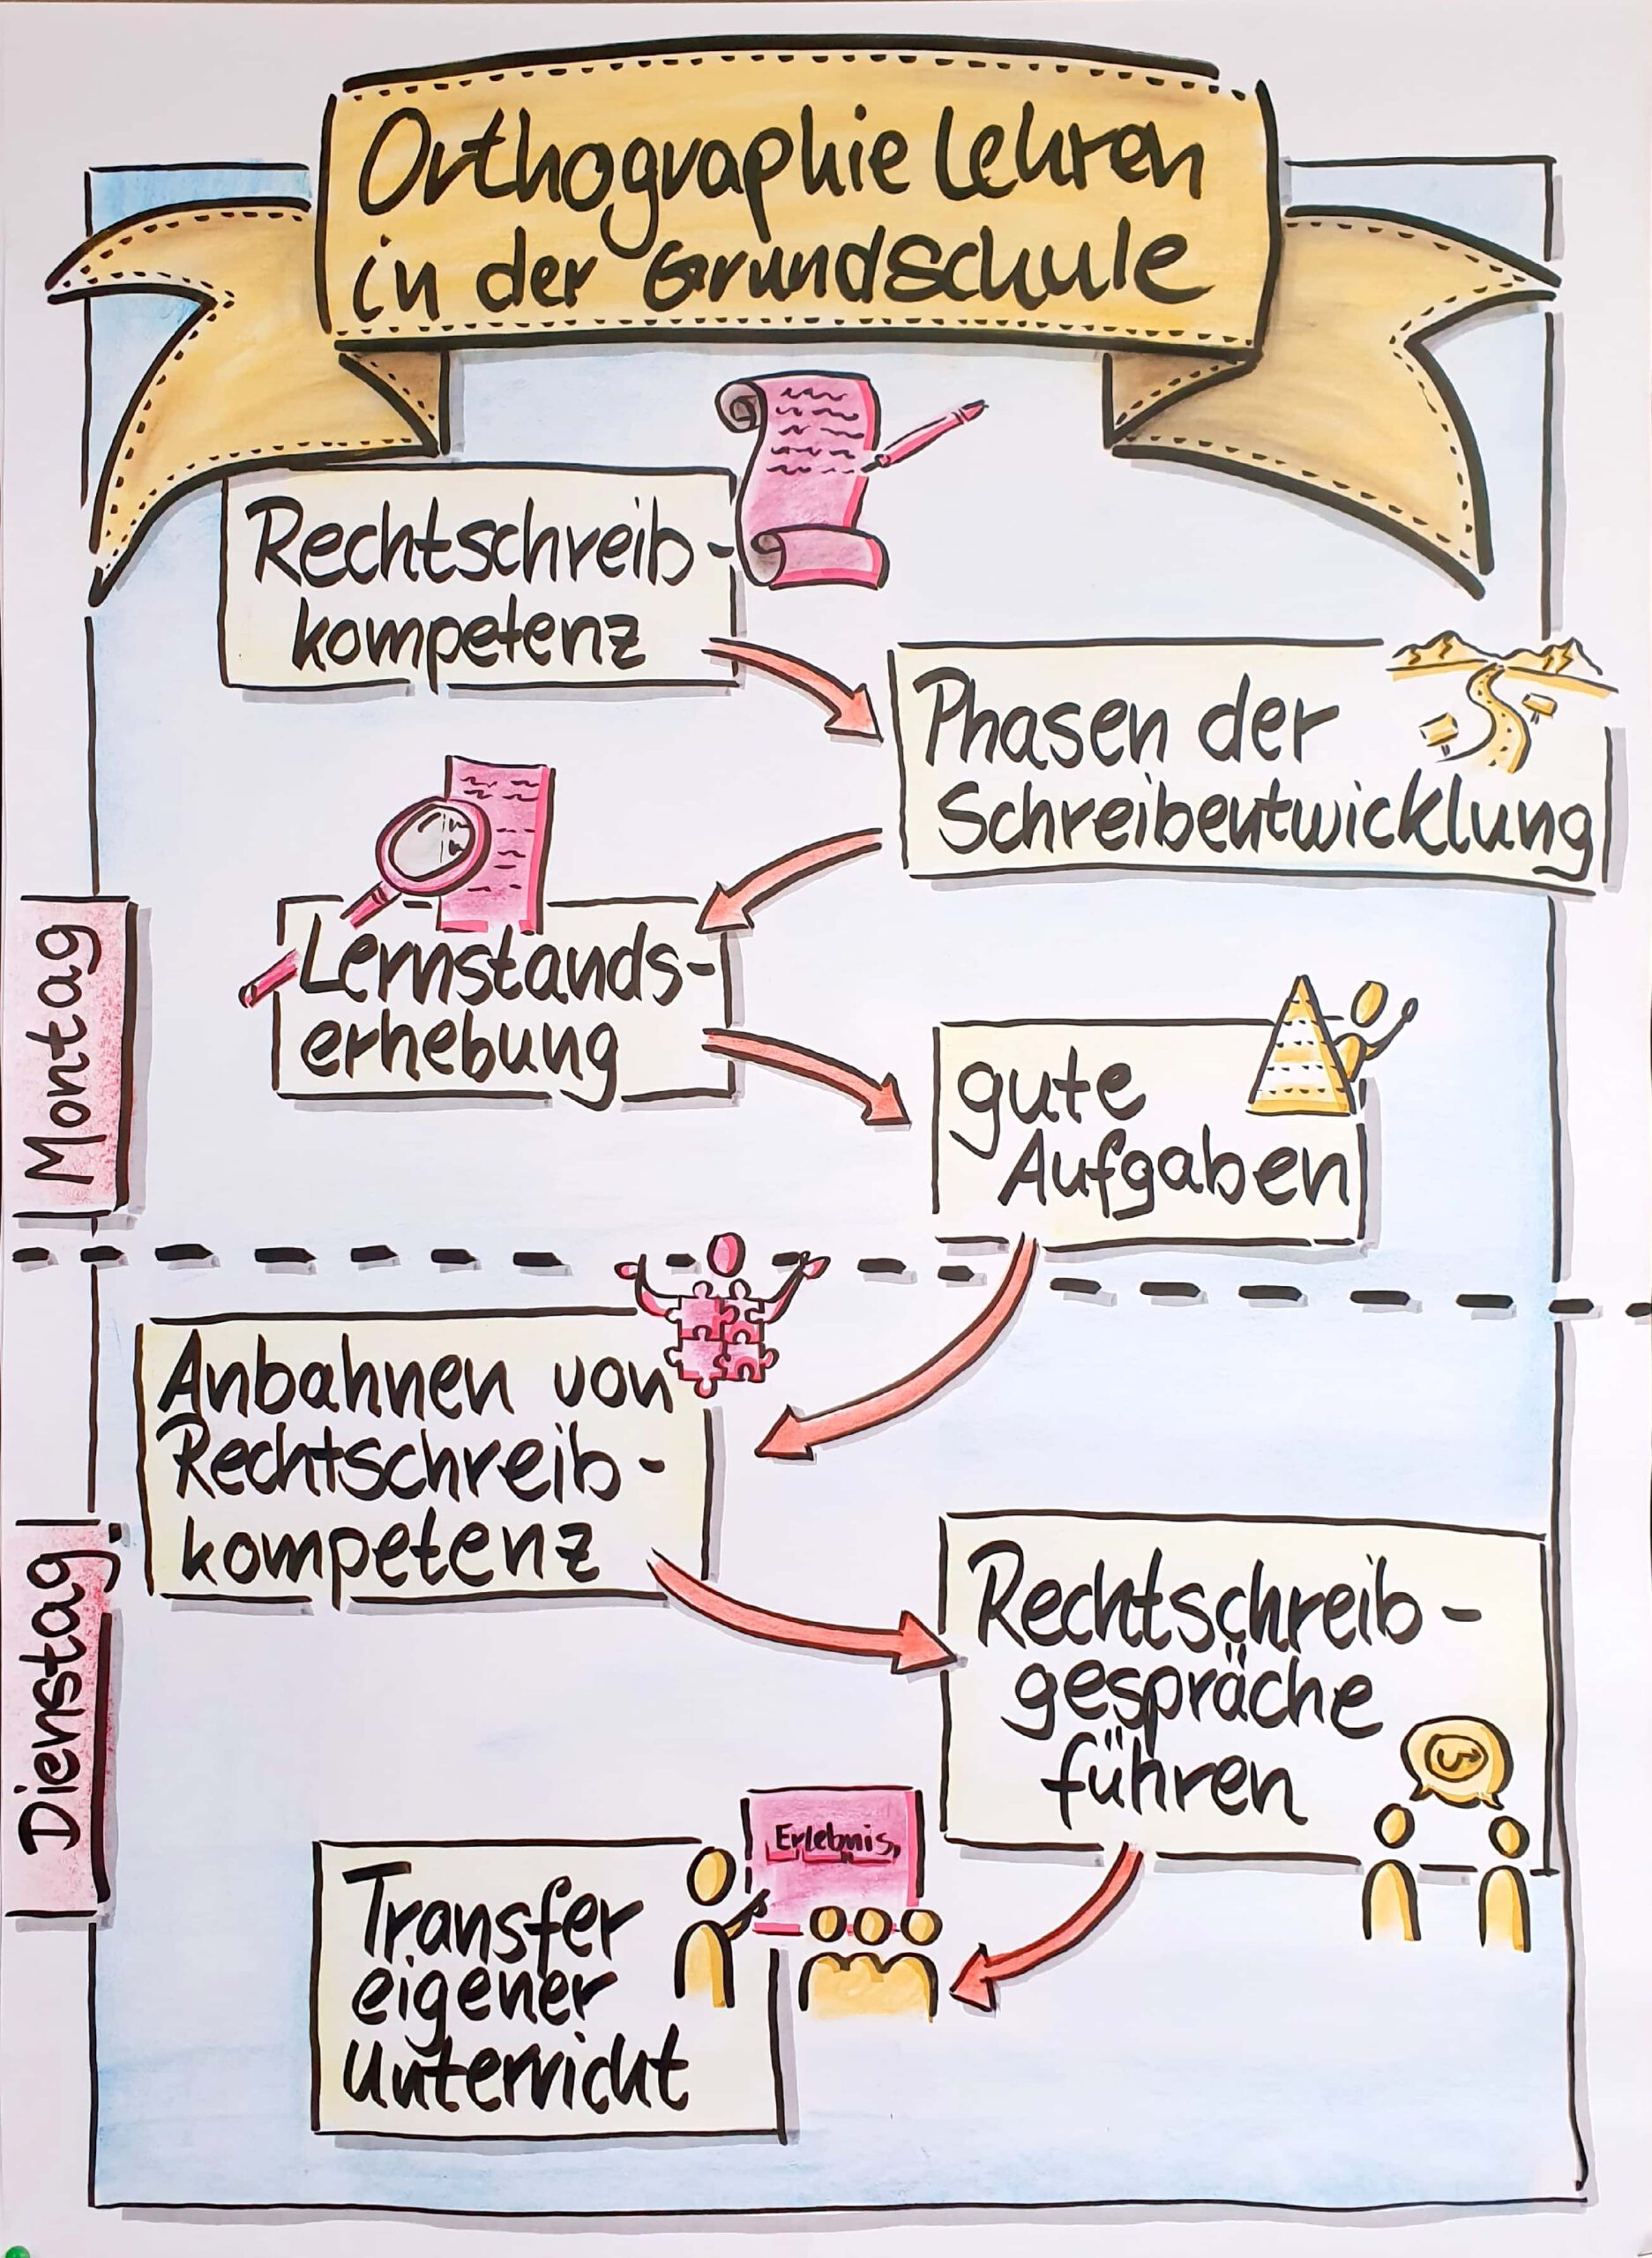 Orthographie lehren
in der Grundschule
Rechtschreib-
kompetenz
Phasen der
Schreibentwicklung
Lernstands-
erhebung
gute
Aufgaben
Montag
Anbahnen von
Rechtschreib-
kompetenz
Rechtschreib-
gespräche
führen
Dienstag
Erlebnis,
Transfer
eigener
Unterricht